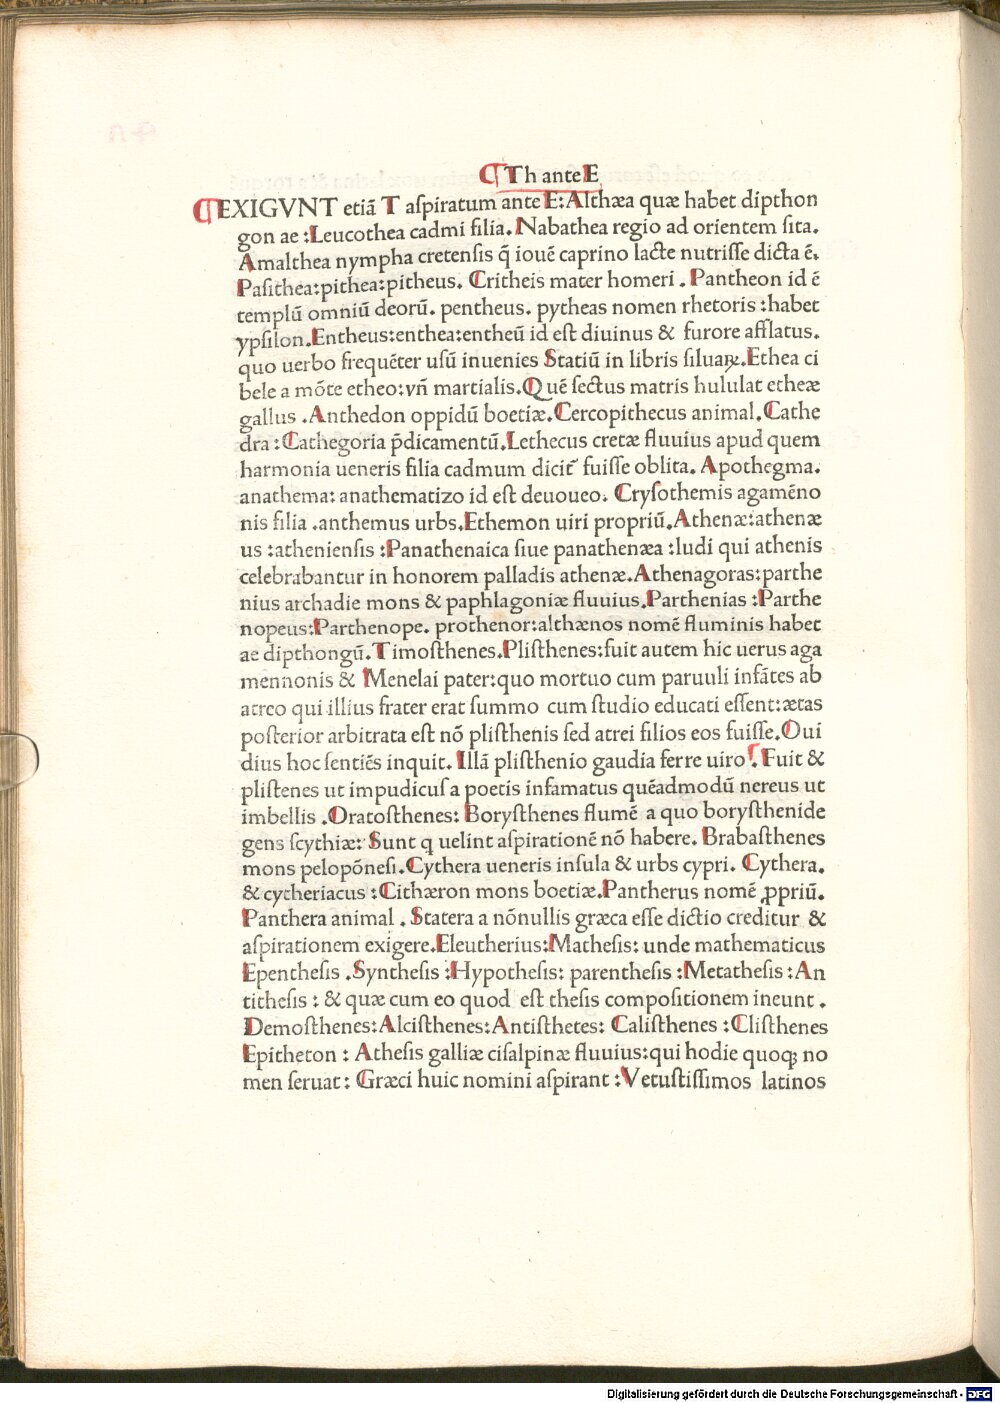 ¶Th ante E
¶EXIGVNT etiā T aſpiratum ante E: Althæa quæ habet dipthon
gon ae :Leucothea cadmi filia. Nabathea regio ad orientem ſita.
Amalthea nympha cretenſis q̄ iouē caprino lacte nutriſſe dicta ē.
Paſithea:pithea:pitheus. Critheis mater homeri . Pantheon id ē
templū omniū deorū. pentheus. pytheas nomen rhetoris :habet
ypſilon.Entheus:enthea:entheū id eſt diuinus & furore afflatus.
quo uerbo frequēter uſū inuenies Statiū in libris ſiluaꝝ.Ethea ci
bele a mōte etheo:vñ martialis.Quē ſectus matris hululat etheæ
gallus .Anthedon oppidū boetiæ.Cercopithecus animal.Cathe
dra :Cathegoria p̄dicamentū.Lethecus cretæ fluuius apud quem
harmonia ueneris filia cadmum dicit᷑ fuiſſe oblita. Apothegma.
anathema: anathematizo id eſt deuoueo. Cryſothemis agamēno
nis filia .anthemus urbs.Ethemon uiri propriū.Athenæ:athenæ
us :athenienſis :Panathenaica ſiue panathenæa :ludi qui athenis
celebrabantur in honorem palladis athenæ.Athenagoras:parthe
nius archadie mons & paphlagoniæ fluuius.Parthenias :Parthe
nopeus:Parthenope. prothenor:althænos nomē fluminis habet
ae dipthongū.Timoſthenes.Pliſthenes:fuit autem hic uerus aga
mennonis & Menelai pater:quo mortuo cum paruuli infātes ab
atreo qui illius frater erat ſummo cum ſtudio educati eſſent:ætas
poſterior arbitrata eſt nō pliſthenis ſed atrei filios eos fuiſſe.Oui
dius hoc ſentiēs inquit. Illā pliſthenio gaudia ferre uiro . Fuit &
pliſtenes ut impudicuſ a poetis infamatus quēadmodū nereus ut
imbellis .Oratoſthenes: Boryſthenes flumē a quo boryſthenide
gens ſcythiæ: Sunt q uelint aſpirationē nō habere. Brabaſthenes
mons pelopōneſi.Cythera ueneris inſula & urbs cypri. Cythera.
& cytheriacus :Cithæron mons boetiæ.Pantherus nomē ꝓpriū.
Panthera animal . Statera a nōnullis græca eſſe dictio creditur &
aſpirationem exigere.Eleutherius:Matheſis: unde mathematicus
Epentheſis .Syntheſis :Hypotheſis: parentheſis :Metatheſis :An
titheſis : & quæ cum eo quod eſt theſis compoſitionem ineunt .
Demoſthenes:Alciſthenes:Antiſthetes: Caliſthenes :Cliſthenes
Epitheton : Atheſis galliæ ciſalpinæ fluuius:qui hodie quoqꝫ no
men ſeruat: Græci huic nomini aſpirant :Vetuſtiſſimos latinos
Digitalisierung gefördert durch die Deutsche Forschungsgemeinschaft - DFG